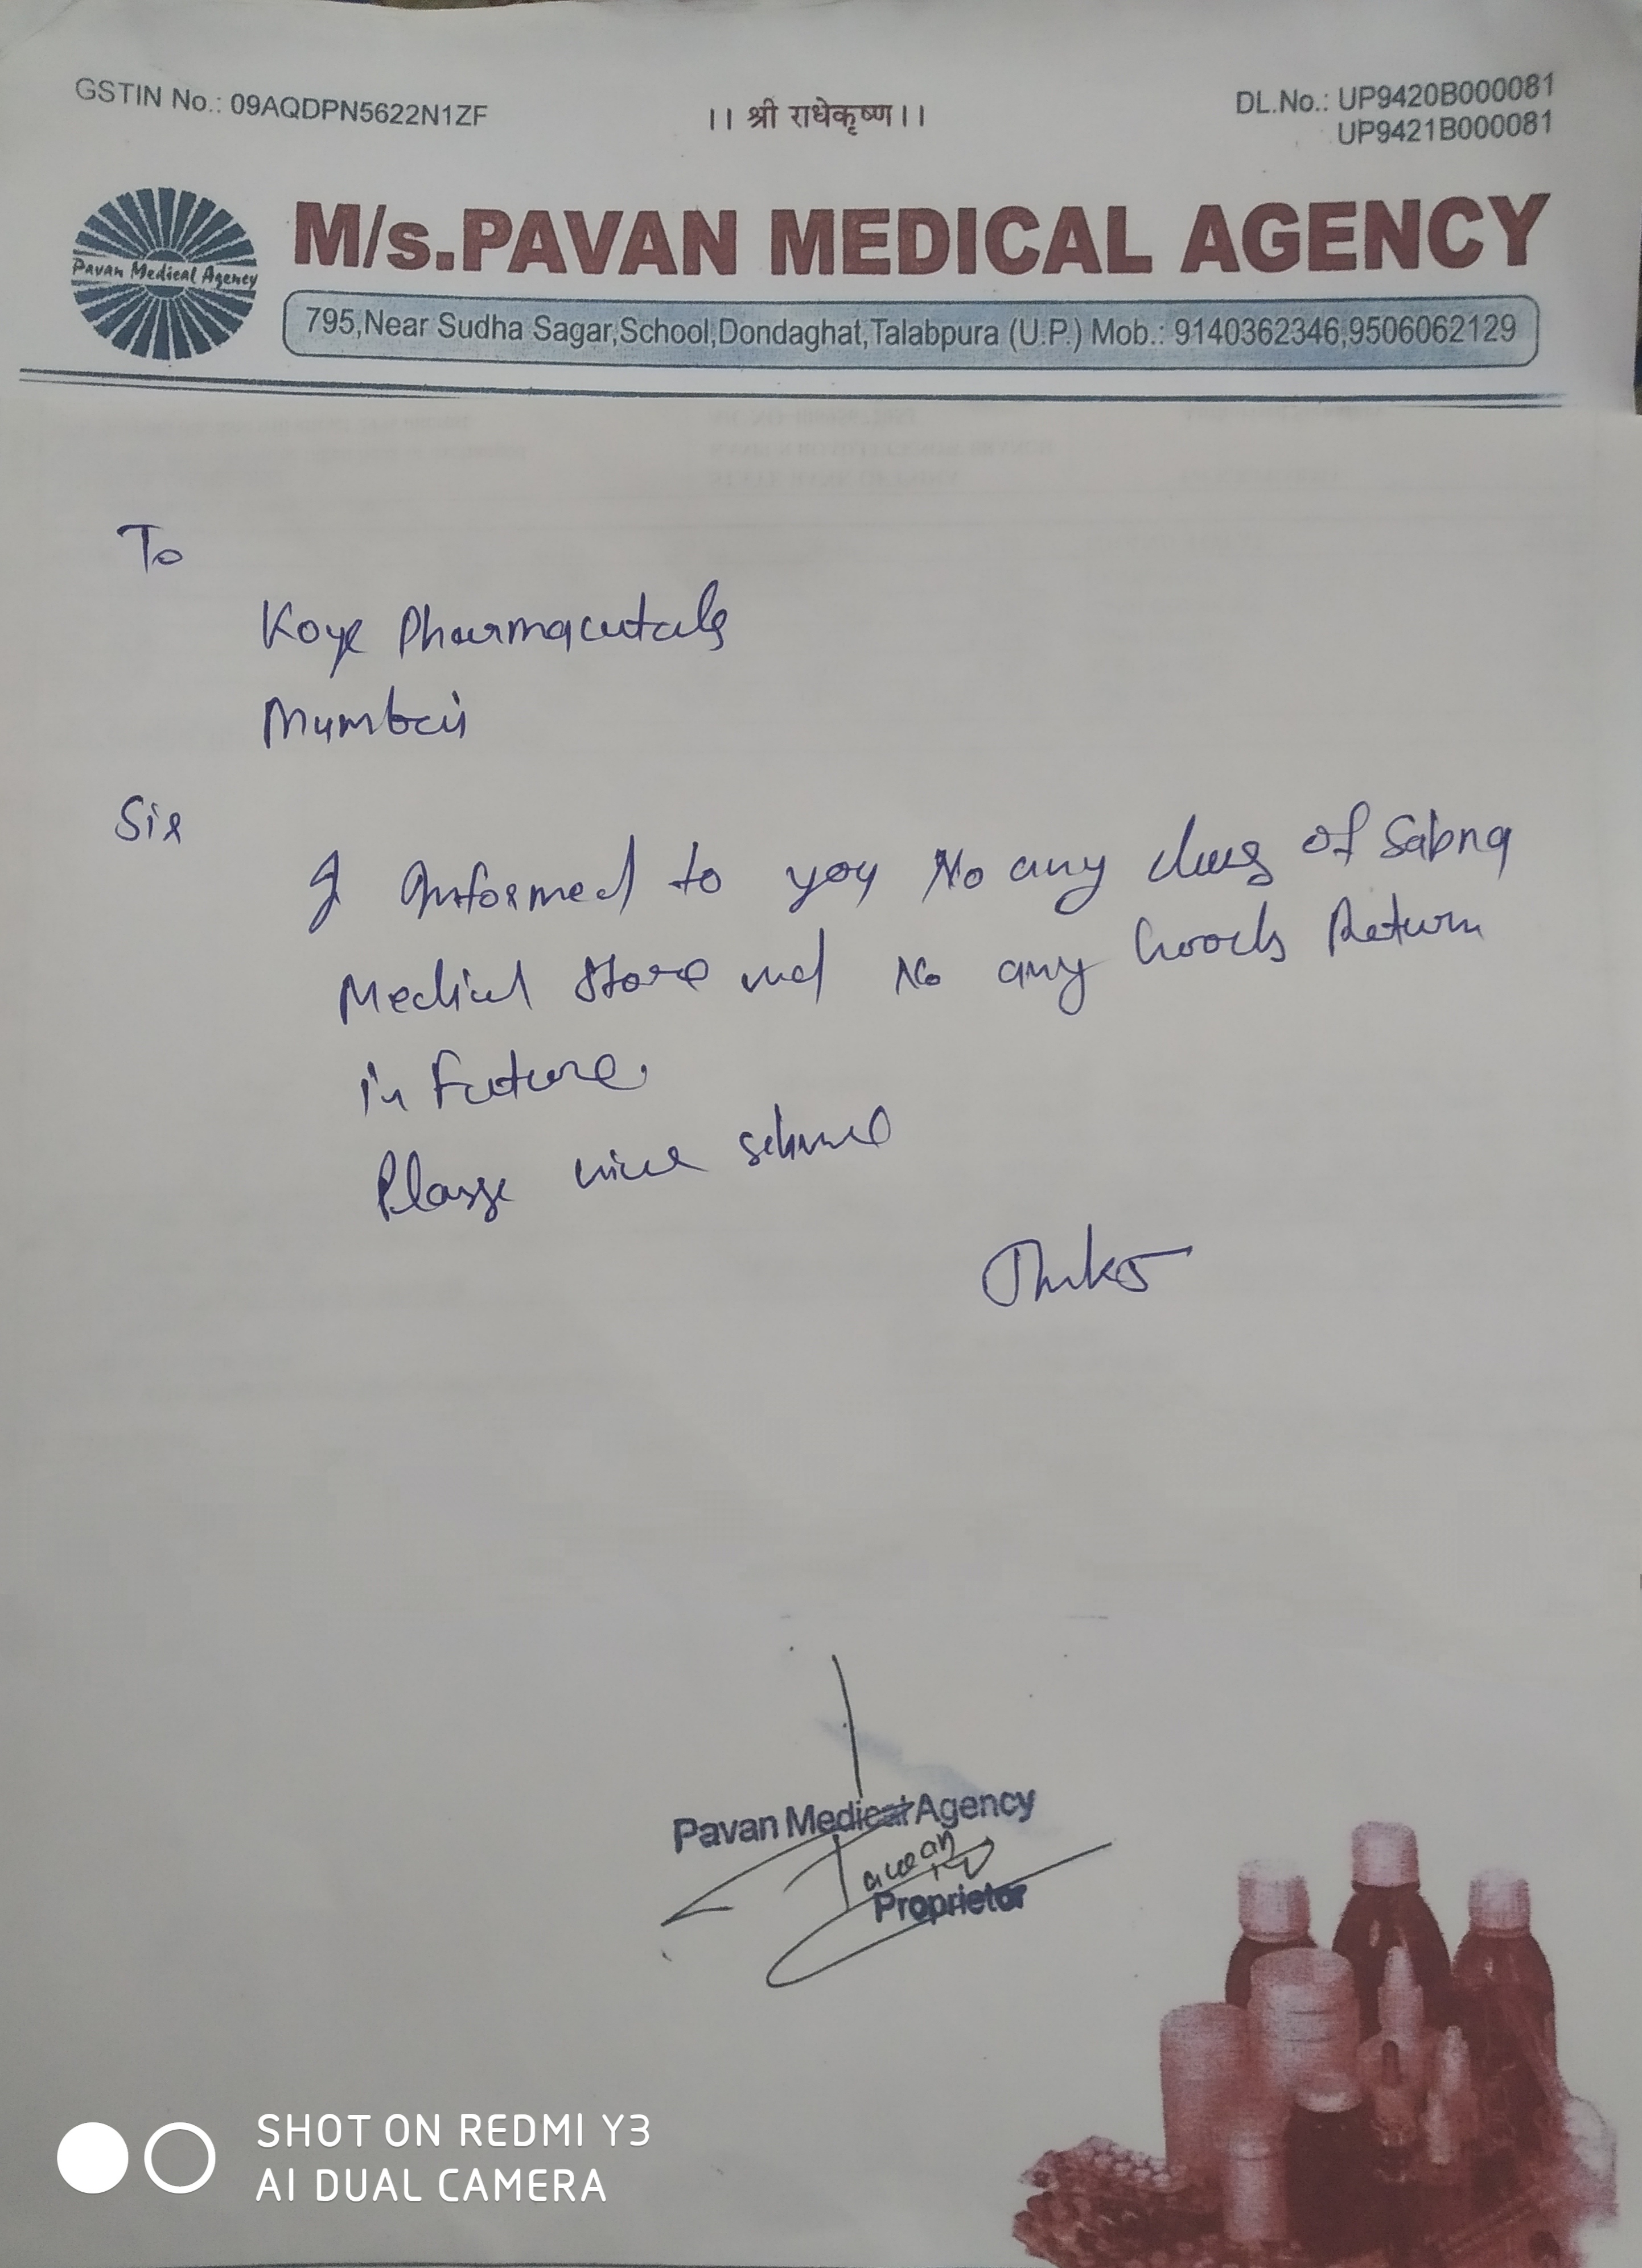 GSTIN No.: 09AQDPN5622N1ZF
।। श्री राधेकृष्ण।।
DL.No.: UP9420B000081
UP9421B000081
Pavan Medical Agency
M/s.PAVAN MEDICAL AGENCY
795,Near Sudha Sagar,School,Dondaghat,Talabpura (U.P.) Mob.: 9140362346,9506062129
To
Koye Pharmacutals
Mumbai
Sir
I Informed to you No any dues of Sabna
Medical Store and No any Goods Return
in Future.
Thnks
Pavan Medical Agency
Pawan
Proprietor
SHOT ON REDMI Y3
AI DUAL CAMERA